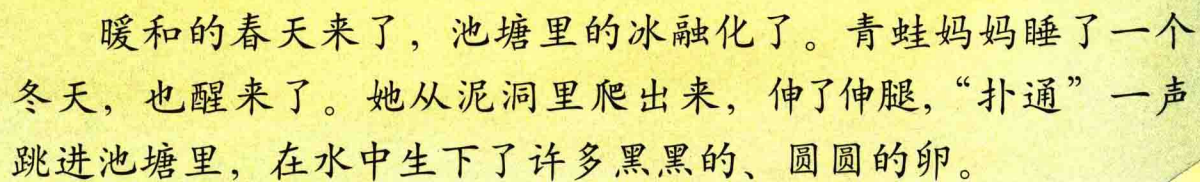 暖和的春天来了，池塘里的冰融化了。青蛙妈妈睡了一个
冬天，也醒来了。她从泥洞里爬出来，伸了伸腿，“扑通”一声
跳进池塘里，在水中生下了许多黑黑的、圆圆的卵。